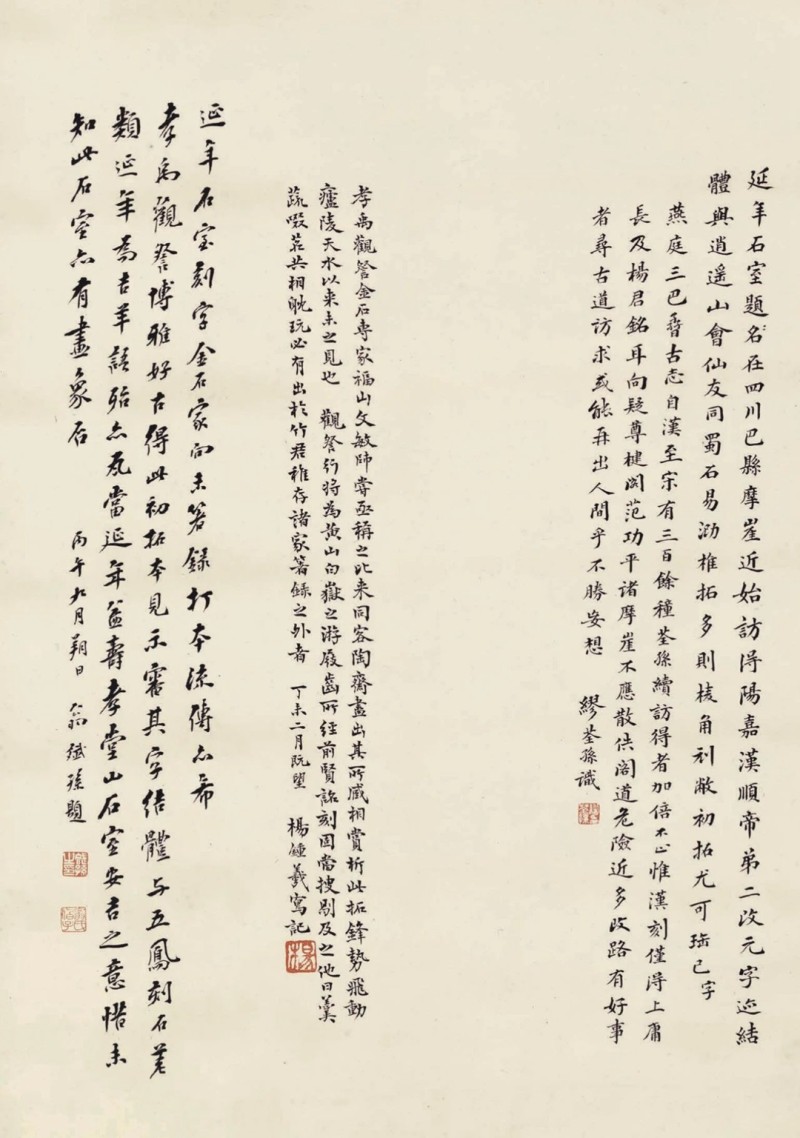 延年石室題名在四川巴縣摩崖近始訪得陽嘉漢順帝弟二改元字迹結
體與逍遙山會仙友同蜀石易泐椎拓多則棱角刓敝初拓尤可珍已字
燕庭三巴𦥑古志自漢至宋有三百餘種荃孫續訪得者加倍不止惟漢刻僅得上庸
長及楊君銘耳向疑尊楗閣范功平諸摩崖不應散佚閣道危險近多改路有好事
者尋古道訪求或能再出人間乎不勝妄想 繆荃孫識
孝禹觀詧金石專家福山文敏師嘗亟稱之比來同客陶齋盡出其所臧相賞析此拓鋒勢飛動
廬陵天水以來未之見也 觀詧行將為黃山白嶽之游屐齒所經前賢銘刻固當搜剔及之他日羹
蔬啜茗共相眈玩必有出於竹君稚存諸家箸錄之外者 丁未二月既望 楊鍾羲寫記
楊
延年石室刻字金石家向未箸錄打本流傳亦希
孝禹觀詧博雅好古得此初拓本見示審其字結體与五鳳刻石差
類延年喬吉羊語殆亦瓦當延年益壽孝堂山石室安吉之意惜未
知此石室亦有畫象否 丙午九月朔日 翁斌孫題